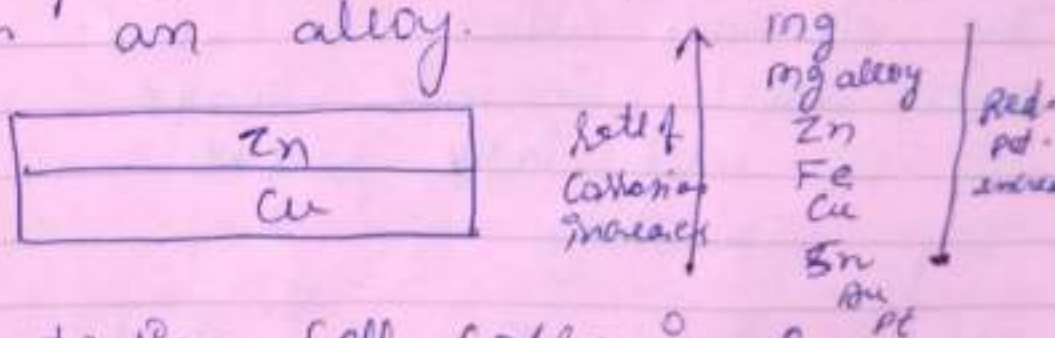 an alloy.
Zn
Cu
Rate of
Corrosion
increases
mg
mg alloy
Zn
Fe
Cu
Sn
Au
Pt
Red.
pot.
Cell